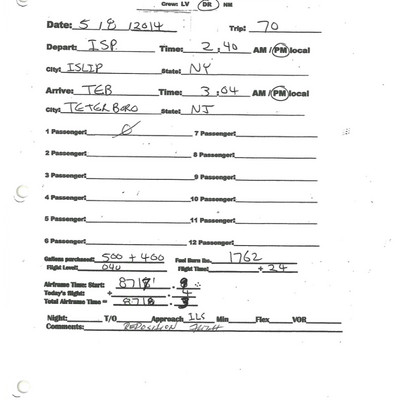 Crew: LV DR NM
Date: 5/8/2014 Trip: 70
Depart: ISP Time: 2:40 AM / PM local
City: ISLIP State: NY
Arrive: TEB Time: 3:04 AM / PM local
City: TETERBORO State: NJ
1 Passenger: 0 7 Passenger:
2 Passenger: 8 Passenger:
3 Passenger: 9 Passenger:
4 Passenger: 10 Passenger:
5 Passenger: 11 Passenger:
6 Passenger: 12 Passenger:
Gallons purchased: 500 + 400 Fuel Burn lbs. 1762
Flight Level: 040 Flight Time: + 24
Airframe Time: Start: 8718
Today's flight: + . 4
Total Airframe Time = 8718 .
Night: T/O Approach ILS Min Flex VOR
Comments: REPOSITION FLIGHT